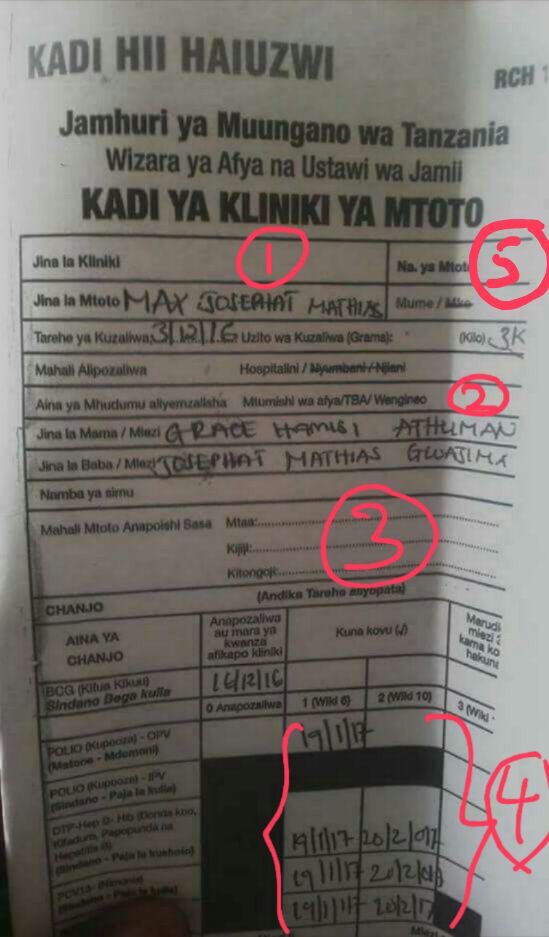 KADI HII HAIUZWI
RCH 1
Jamhuri ya Muungano wa Tanzania
Wizara ya Afya na Ustawi wa Jamii
KADI YA KLINIKI YA MTOTO
Jina la Kliniki 1 Na. ya Mtoto 5
Jina la Mtoto MAX JOSEPHAT MATHIAS Mume / Mke
Tarehe ya Kuzaliwa: 3/12/16 Uzito wa Kuzaliwa (Grams): (Kilo) 3K
Mahali Alipozaliwa Hospitalini / Nyumbani / Njiani
Aina ya Mhudumu aliyemzalisha Mtumishi wa afya/TBA/ Wengineo 2
Jina la Mama / Mlezi GRACE HAMISI ATHUMAN
Jina la Baba / Mlezi JOSEPHAT MATHIAS GWAJIMA
Namba ya simu
Mahali Mtoto Anapoishi Sasa Mtaa:
Kijiji: 3
Kitongoji:
CHANJO (Andika Tarehe anyopata)
AINA YA CHANJO
Anapozaliwa au mara ya kwanza afikapo kliniki
Kuna kovu (√)
Marudi miezi kama hakuna
BCG (Kifua Kikuu)
Sindano Bega kulia
16/12/16
0 Anapozaliwa 1 (Wiki 6) 2 (Wiki 10) 3 (Wiki
POLIO (Kupooza) - OPV
(Matone - Mdomoni)
19/1/17
POLIO (Kupooza) - IPV
(Sindano - Paja la kulia)
4
DTP-Hep B- Hib (Donda koo,
Kifaduro, Pepopunda na
Hepatitis B)
(Sindano - Paja la kushoto)
19/1/17
PCV13- (Nimonia)
(Sindano - Paja la kulia)
19/1/17
19/1/17 20/2/17